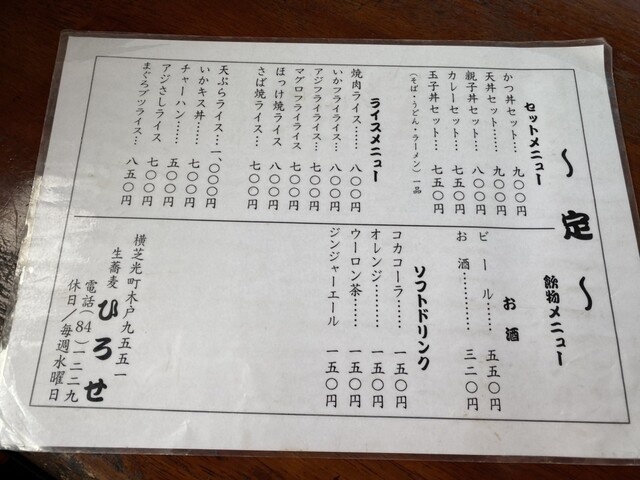 〜 定 〜
セットメニュー
かつ丼セット……九〇〇円
天丼セット………九〇〇円
親子丼セット……八〇〇円
カレーセット……七五〇円
玉子丼セット……七五〇円
(そば・うどん・ラーメン)一品
ライスメニュー
焼肉ライス………八〇〇円
いかフライライス…八〇〇円
アジフライライス…七〇〇円
マグロフライライス 七〇〇円
ほっけ焼ライス…八〇〇円
さば焼ライス……七〇〇円
天ぷらライス…一、〇〇〇円
いかキス丼………八〇〇円
チャーハン………五〇〇円
アジさしライス 七〇〇円
まぐろブツライス…八五〇円
飲物メニュー
お酒
ビール……五五〇円
お酒…………三二〇円
ソフトドリンク
コカコーラ………一五〇円
オレンジ…………一五〇円
ウーロン茶………一五〇円
ジンジャーエール 一五〇円
横芝光町木戸九五五一
生蕎麦 ひろせ
電話(84)一二二九
休日/毎週水曜日